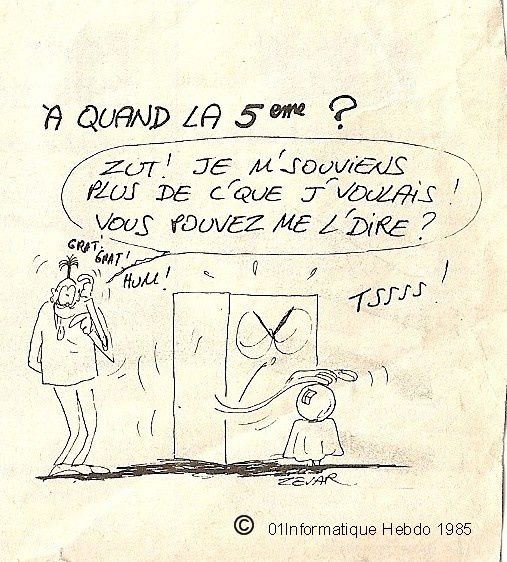 À QUAND LA 5eme ?
ZUT! JE M'SOUVIENS
PLUS DE C'QUE J'VOULAIS!
VOUS POUVEZ ME L'DIRE?
GRAT!
GRAT!
HUM!
TSSSS!
ZEJAR
© 01Informatique Hebdo 1985